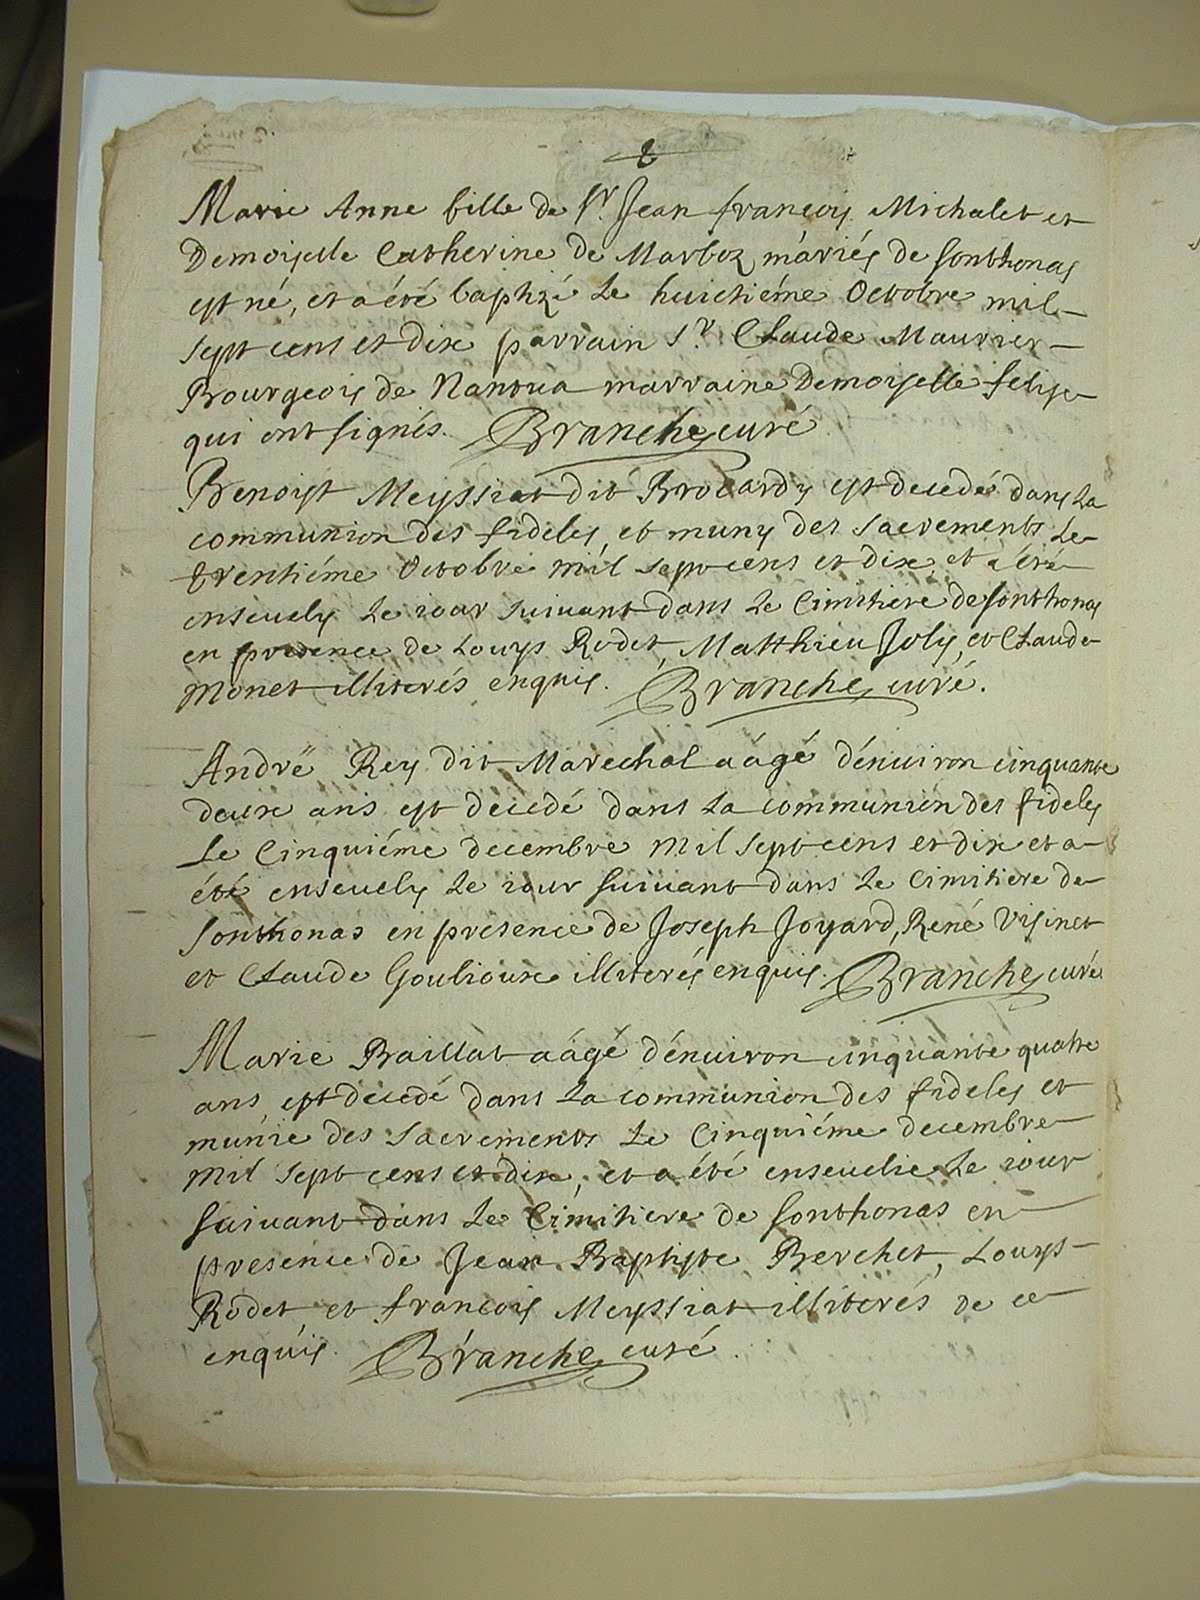 8
Marie Anne fille de Sr. Jean françois Michalet et
Demoiselle Catherine de Marboz màriés de Sonthonas
est né, et a été baptizé le huictiéme Octobre mil
Sept cens et dix parrain Sr. Claude Maurier
Bourgeois de Nantua marraine Demoiselle felise
qui ont signés. Branche curé
Benoist Meyssiat dit Brocardy est decedé dans la
communion des fideles, et muny des Sacrements Le
trentiéme Octobre mil sept cens et dix et a été
ensevely Le iour suivant dans Le Cimitiere de Sonthonas
en presence de Louys Rodet, Matthieu Joly, et Claude
Monet illiterés enquis. Branche curé.
André Rey dit Marechal aàgé dénuiron cinquante
deux ans est decedé dans La communion des fideles
Le Cinquiéme decembre Mil Sept cens et dix et a
été ensevely Le iour suivant dans Le Cimitiere de
Sonthonas en presence de Joseph Joyard, René Visinet
et Claude Goulioux illiterés enquis. Branche curé
Marie Baillat aàgé dénuiron cinquante quatre
ans est decedé dans La communion des fideles et
munie des Sacrements Le Cinquiéme decembre
Mil Sept cens et dix, et a été enseuelie Le iour
suivant dans Le Cimitiere de Sonthonas en
presence de Jean Baptiste Berchet, Louys
Rodet, et françois Meyssiat illiterés de ce
enquis. Branche curé.